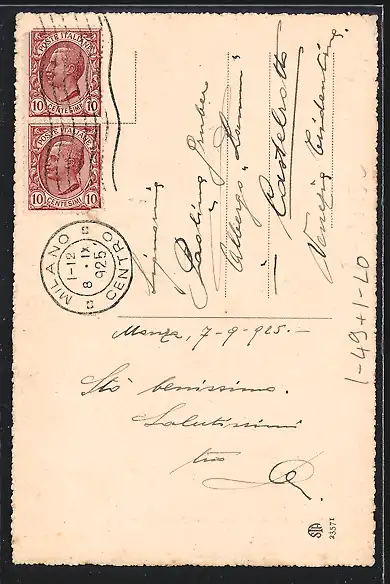 POSTE ITALIANE
10 CENTESIMI 10
POSTE ITALIANE
10 CENTESIMI 10
MILANO CENTRO
1-12
8 . IX
925
Signorina
Paolina Gruber
Albergo
Castelrotto
Venezia Tridentina
Monza, 7-9-925.-
Stò benissimo.
Salutissimi
tuo
1-49+1-20
STA
23571